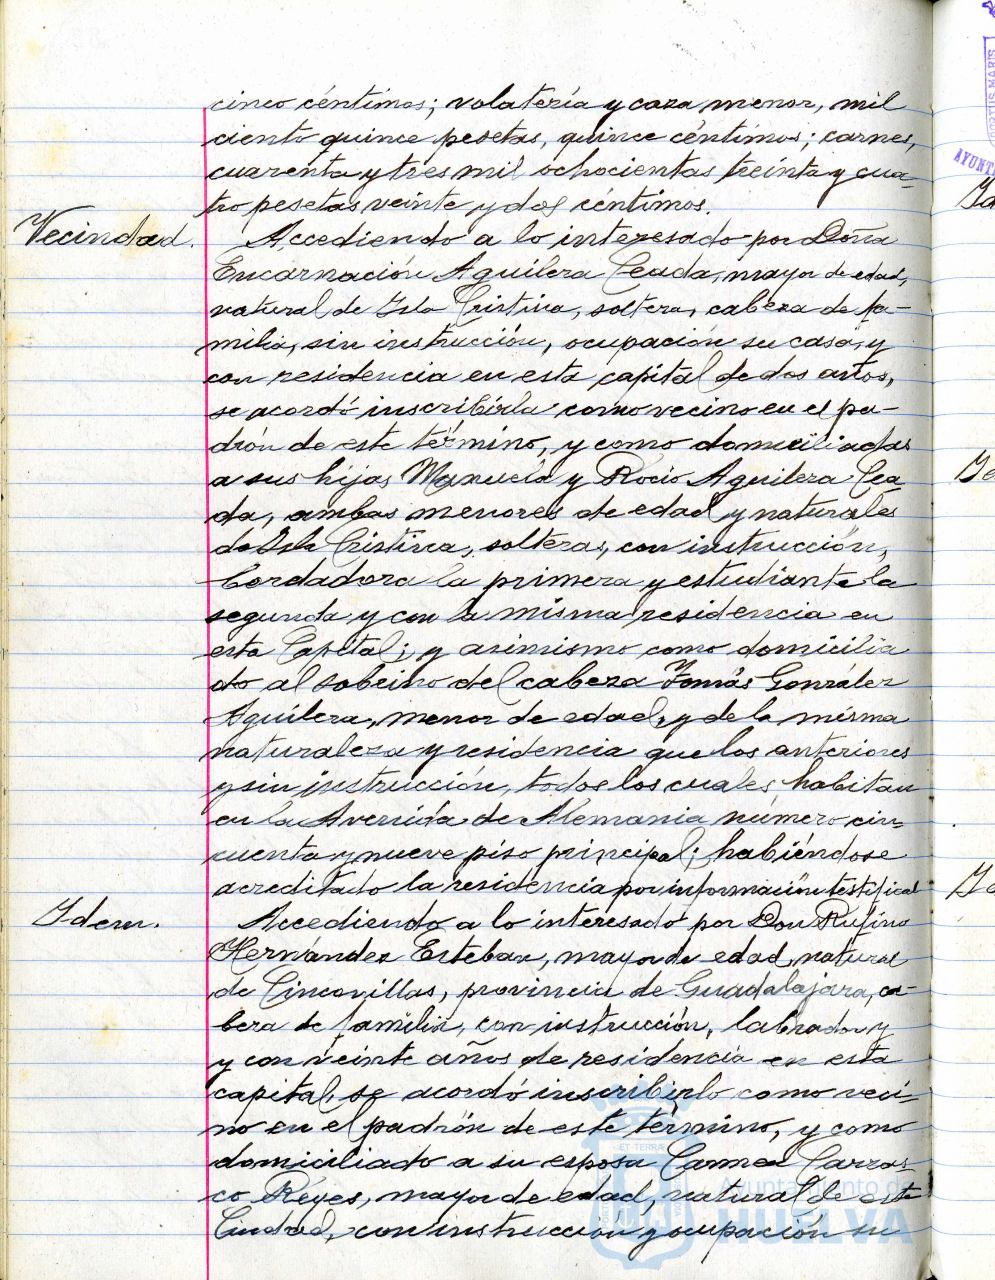 cinco céntimos; volatería y caza menor, mil
ciento quince pesetas, quince céntimos; carnes,
cuarenta y tres mil ochocientas treinta y cua-
tro pesetas veinte y dos céntimos.
Vecindad.
Accediendo a lo interesado por Doña
Encarnación Aguilera Ceada, mayor de edad,
natural de Isla Cristina, soltera, cabeza de fa-
milia, sin instrucción, ocupación su casa, y
con residencia en esta capital de dos años,
se acordó inscribirla como vecino en el pa-
drón de este término, y como domiciliadas
a sus hijas Manuela y Rocío Aguilera Cea
da, ambas menores de edad y naturales
de Isla Cristina, solteras, con instrucción,
bordadora la primera y estudiante la
segunda y con la misma residencia en
esta Capital; y asimismo como domicilia
do al sobrino del cabeza Tomás González
Aguilera, menor de edad, y de la misma
naturaleza y residencia que los anteriores
y sin instrucción, todos los cuales habitan
en la Avenida de Alemania número cin-
cuenta y nueve piso principal; habiéndose
acreditado la residencia por información testifical
Idem.
Accediendo a lo interesado por Don Rufino
Hernández Esteban, mayor de edad, natural
de Cincovillas, provincia de Guadalajara, ca-
beza de familia, con instrucción, labrador y
y con veinte años de residencia en esta
capital, se acordó inscribirlo como veci-
no en el padrón de este término, y como
domiciliado a su esposa Carmen Carras-
co Reyes, mayor de edad, natural de esta
Ciudad, con instrucción y ocupación su
Ayuntamiento de
HUELVA